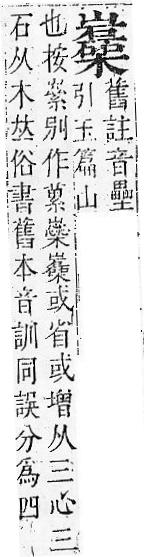 舊註音壘
引玉篇山
也按别作或省或增从三心三
石从木𠀤俗書舊本音訓同誤分為四